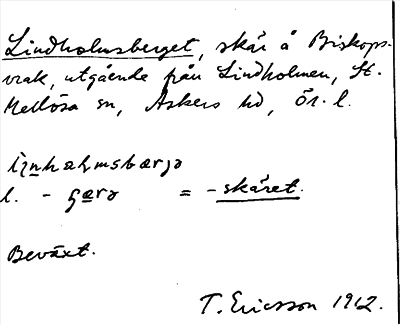 Lindholmsberget, skär å Biskops-
vrak, utgående från Lindholmen, St.
Mellösa sn, Askers hd, Ör. l.
l. - = - skäret.
Beväxt.
T. Ericsson 1912.